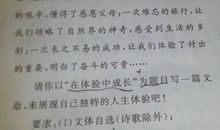 的艰辛,懂得了感恩父母;一次难忘的旅行,让
我们领略了自然界的神奇,感受到生活的多
彩;一次来之不易的成功,让我们体验了付出
的重要,明白了奋斗的可贵……
请你以"在体验中成长"为题目写一篇文
章,来展现自己独特的人生体验吧!
要求:(1)文体自选(诗歌除外);